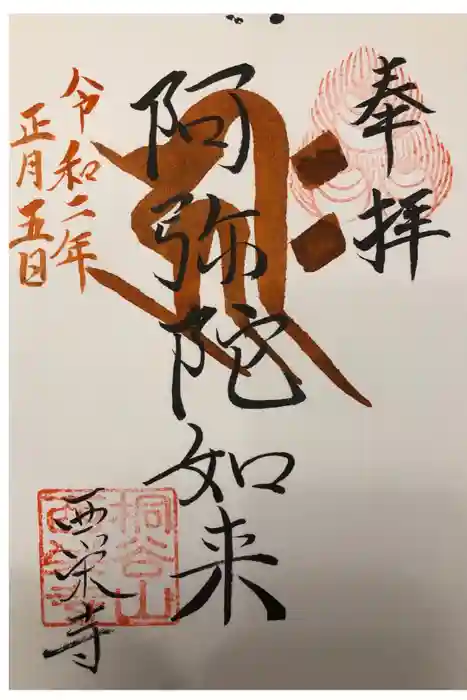 奉拝
阿弥陀如来
令和二年
正月五日
西栄寺
桐谷山